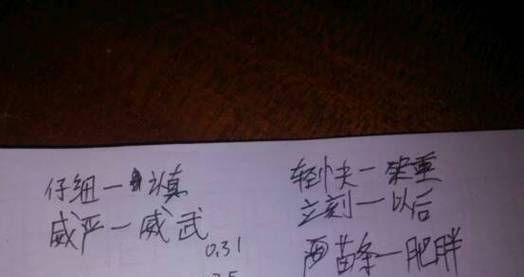 仔细一填
威严一威武
0.31
轻快一笨重
立刻一以后
苗条一肥胖